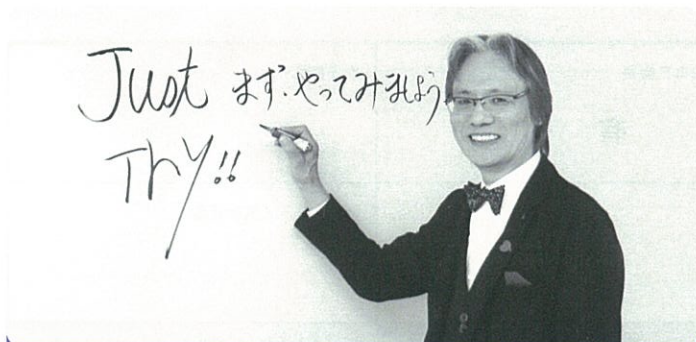 Just まず、やってみましょう
Try!!